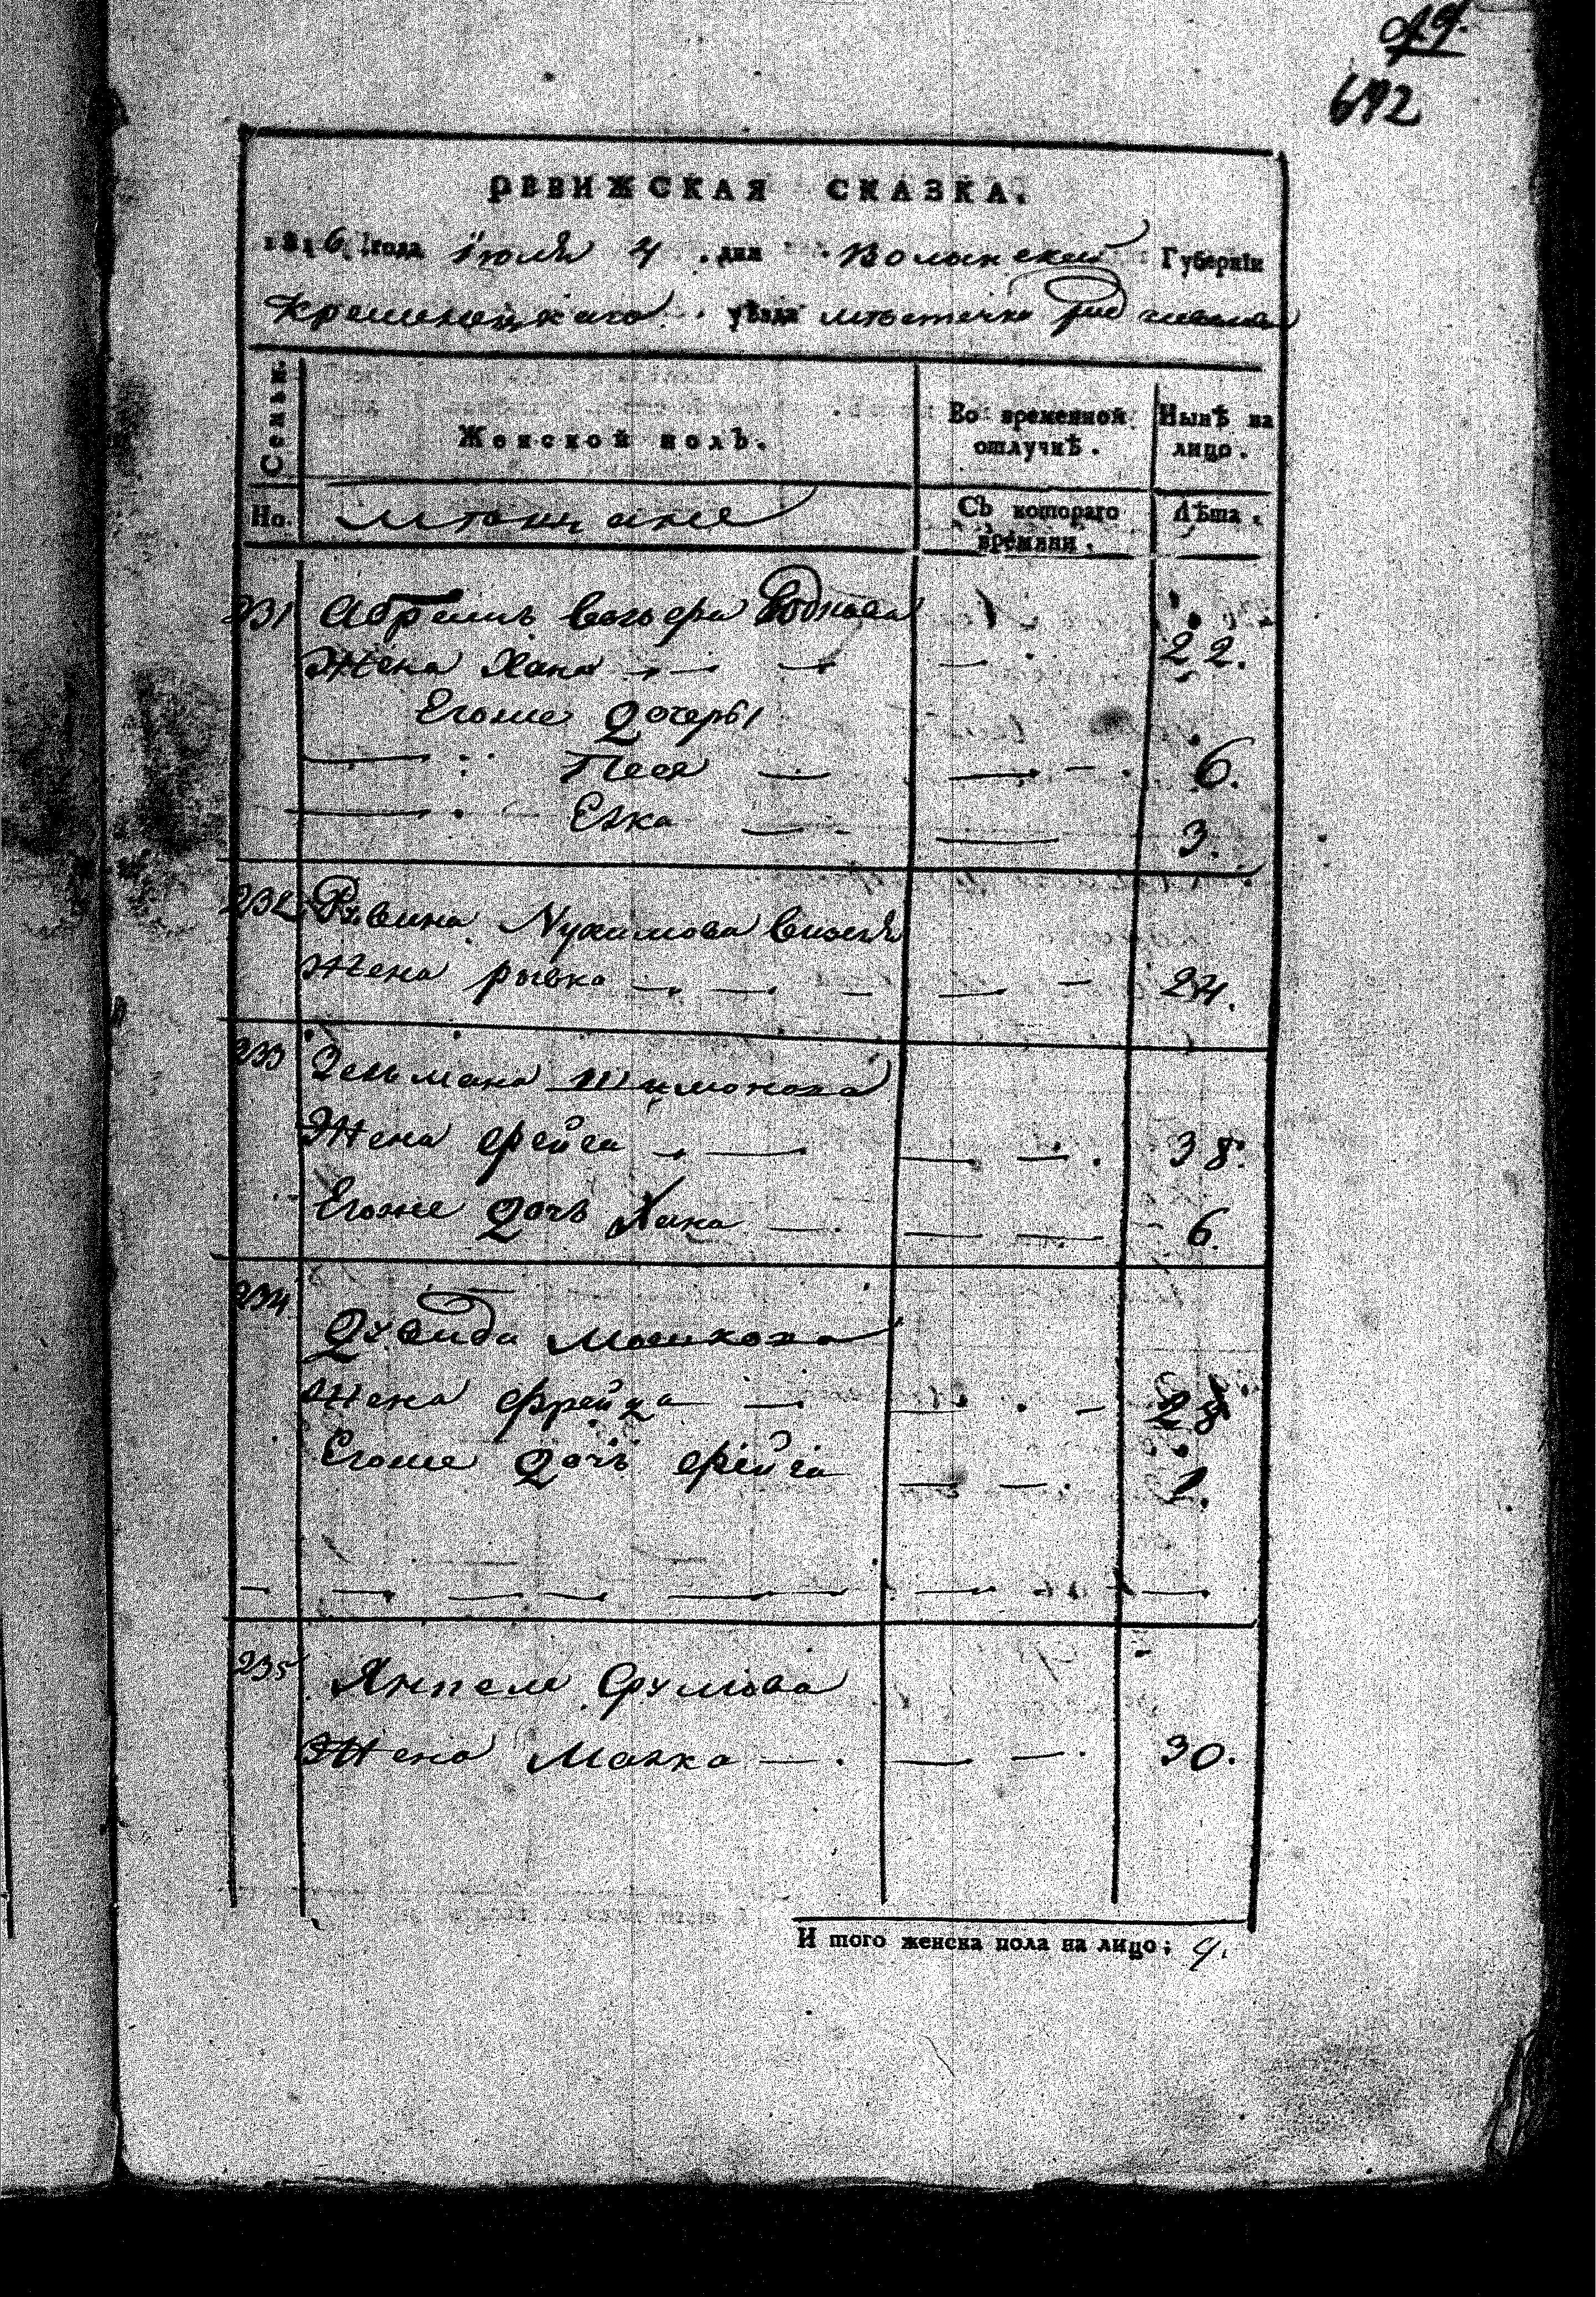 692
РЕВИЖСКАЯ СКАЗКА.
1816 года Іюля 4 дня Волынской Губерніи
Кременецкаго уѣзда мѣстечка
Семьи.
Женской полъ.
Во временной отлучкѣ.
Нынѣ на лицо.
Но.
Мѣщане
Съ котораго времяни.
Лѣта.
231 Абрамъ
Жена Хана 22.
Егоже Дочеры
Песя 6.
Езка 3.
232
Жена рывка 24.
233 Зельмана Шимонова
Жена фейга 38.
Егоже Дочь Хана 6.
234
Дувида Мошкова
Жена Фрейда 28
Егоже Дочь фейга 1.
235 Янкеля Срулова
Жена Малка 30.
И того женска пола на лицо; 9.